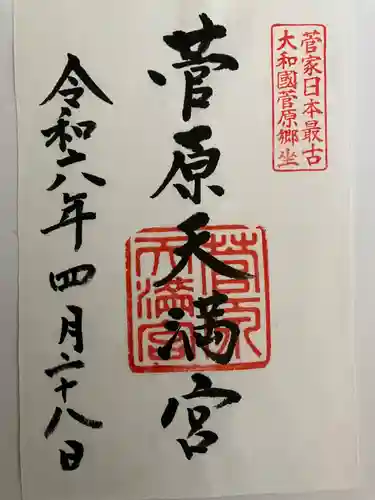 菅家日本最古
大和國菅原郷坐
菅原天満宮
菅家
天満宮
令和六年四月二十八日